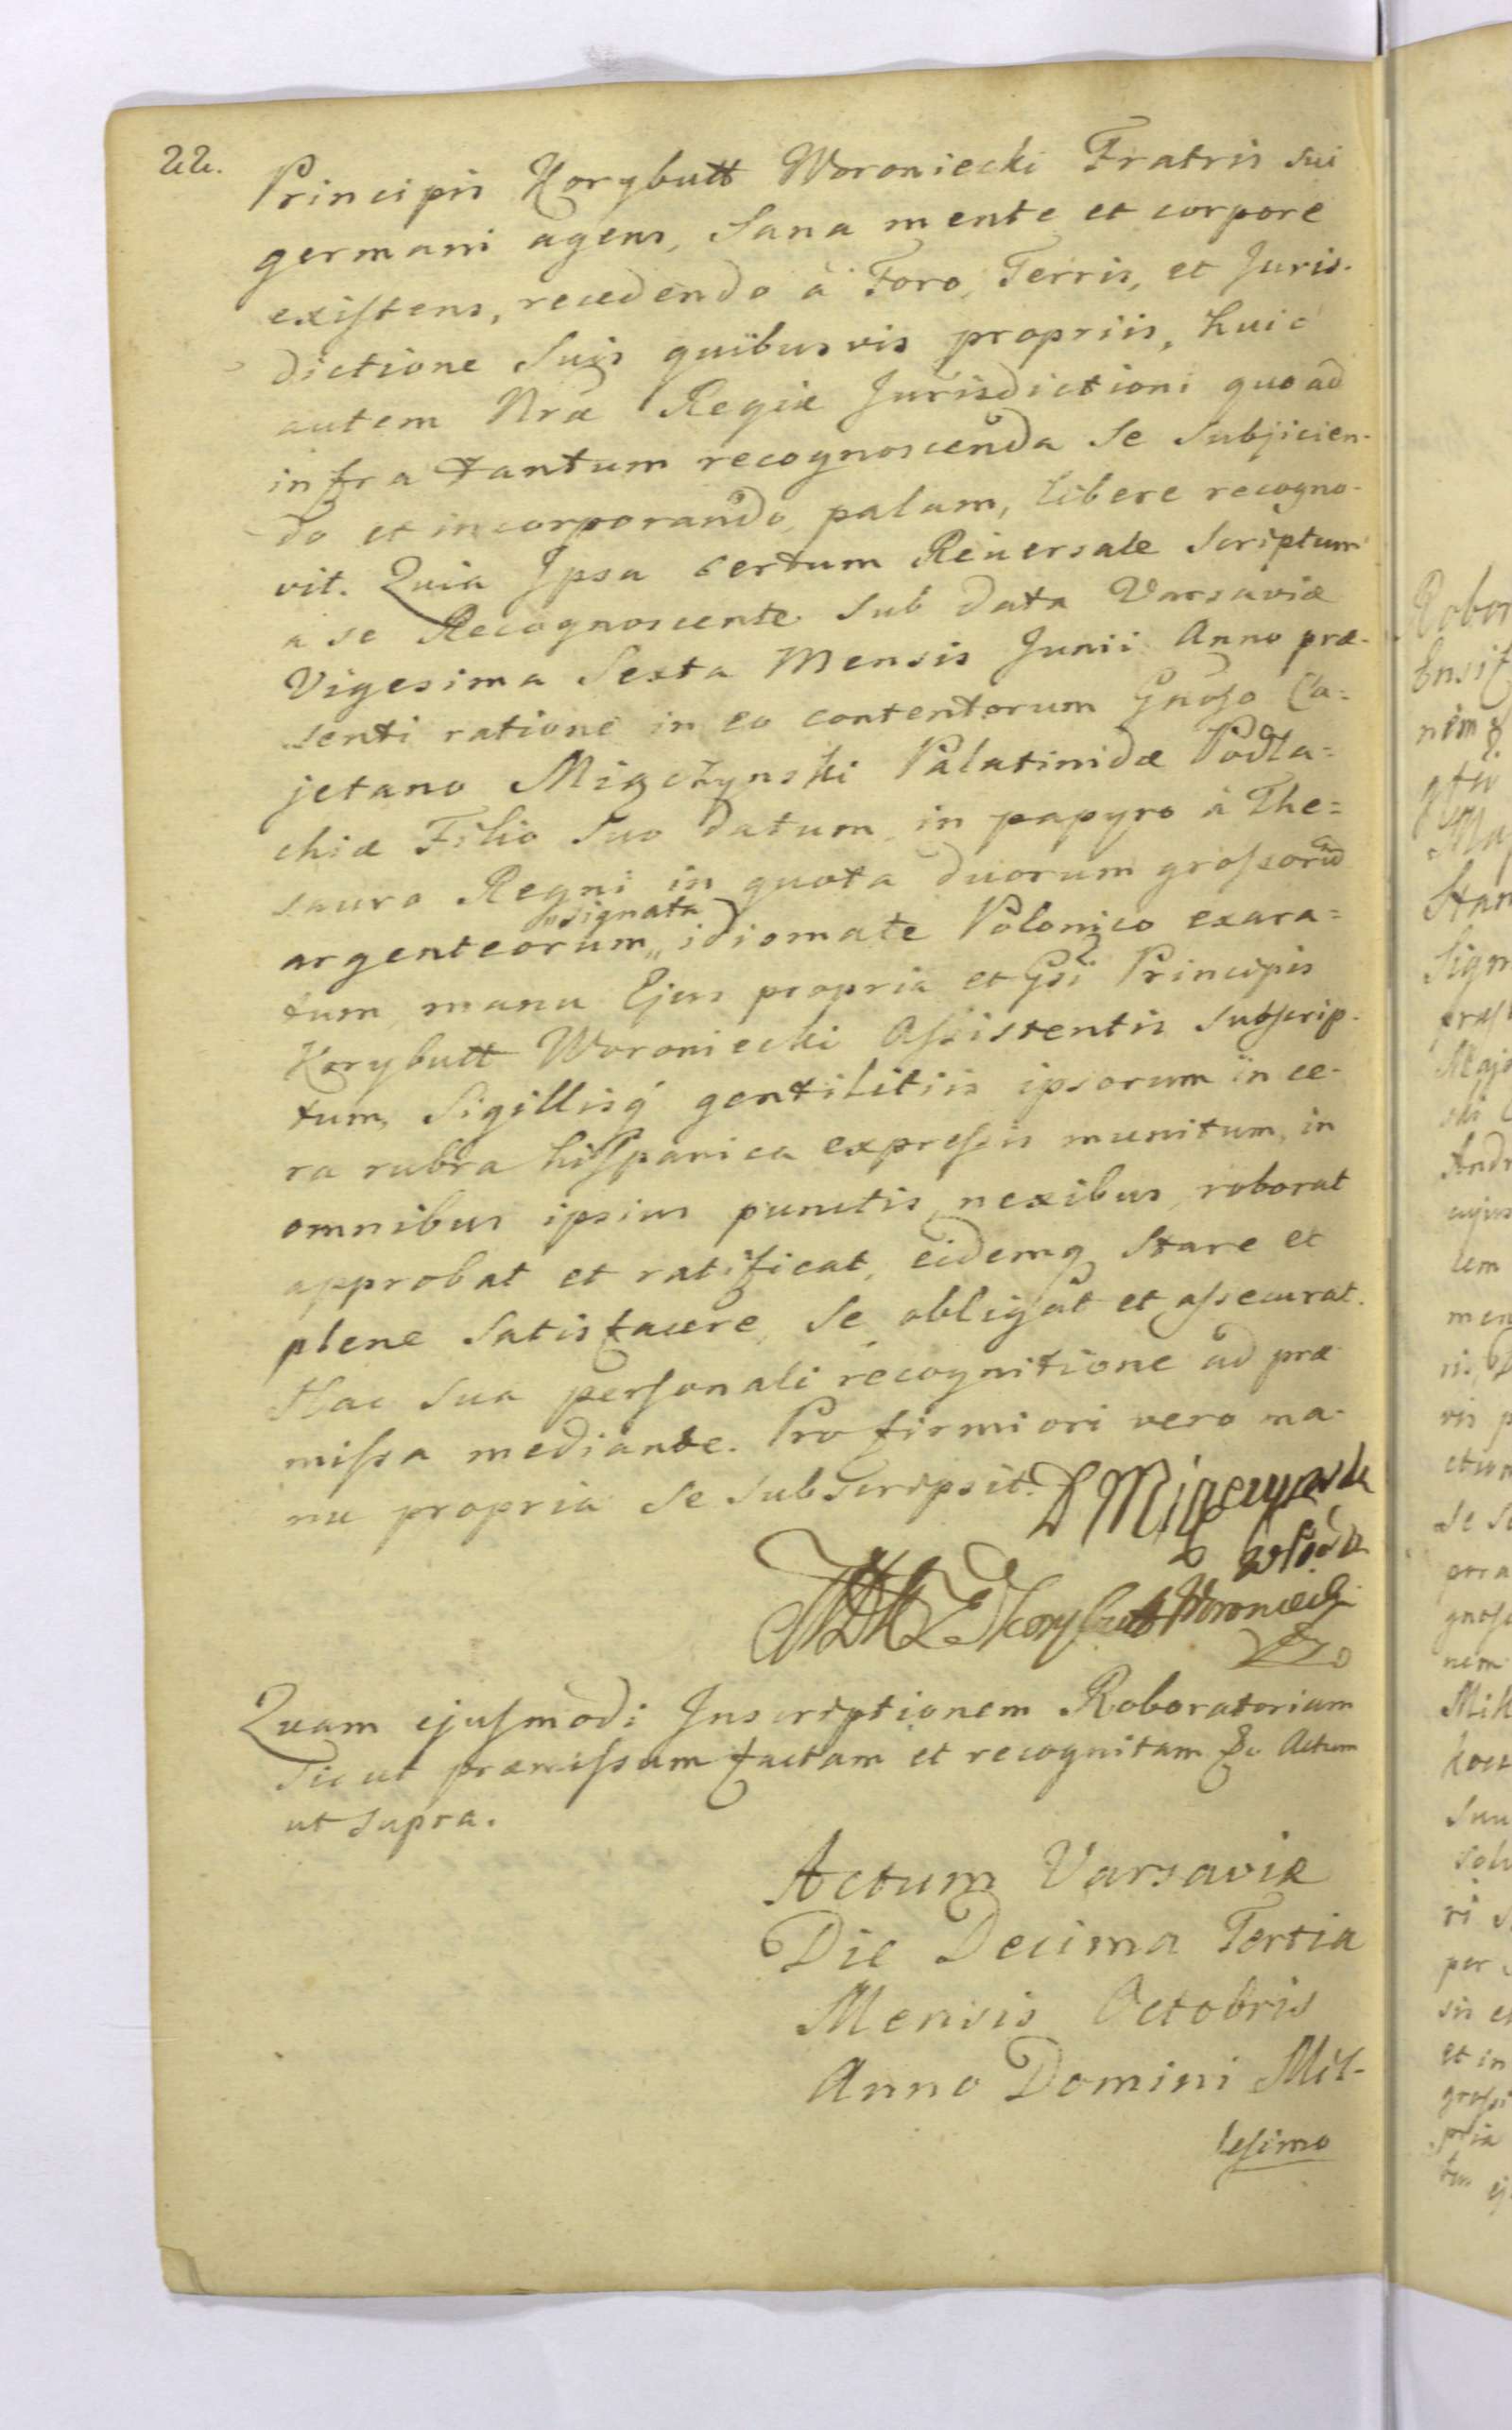 22.
Principis Korybutt Woroniecki Fratris sui
germani agens, Sana mente et corpore
existens, recedendo à Foro, Terris, et Juris-
dictione Suis quibusvis propriis, huic
autem Nræ Regiæ Jurisdictioni quoad
infra tantum recognoscenda Se Subjicien-
do et incorporando, palam, libere recogno-
vit. Quia Ipsa certum Reversale Scriptum
a se Recognoscente Sub data Varsaviæ
Vigesima Sexta Mensis Junii Anno præ-
senti ratione in eo contentorum Gnoso Ca=
jetano Miączynski Palatinidæ Podla=
chiæ Filio Suo datum, in papyro à The=
sauro Regni in quota duorum grossorum
signata
argenteorum,, idiomate Polonico exara=
tum manu Ejus propria et Gsi Principis
Korybutt Woroniecki Assistentis subscrip-
tum, Sigillisq́ gentilitiis ipsorum in ce-
ra rubra hispanica expressis munitum, in
omnibus ipsius punctis, nexibus, roborat
approbat et ratificat, eidemq Stare et
plene Satisfacere, Se obligat et assecurat.
Hac Sua personali recognitione ad præ
missa mediante. Pro firmiori vero ma-
nu propria Se Subscripsit. D Miączynska
Korybutt Woroniecki
Quam ejusmodi Inscriptionem Roboratoriam
Sicut præmissam factam et recognitam &c Actum
ut supra.
Actum Varsaviæ
Die Decima Tertia
Mensis Octobris
Anno Domini Mil-
lesimo